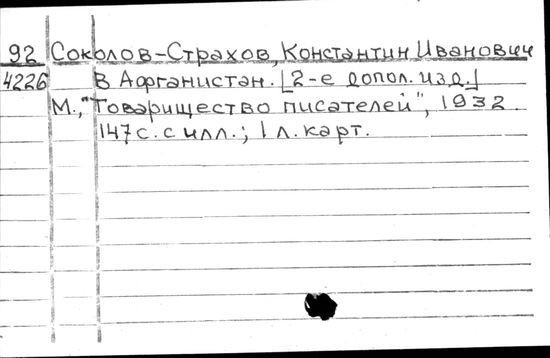 92 Соколов-Страхов, Константин Иванович
4226 В Афганистан. [2-е допол. изд.]
М., "Товарищество писателей", 1932.
147 с. с илл.; 1 л. карт.